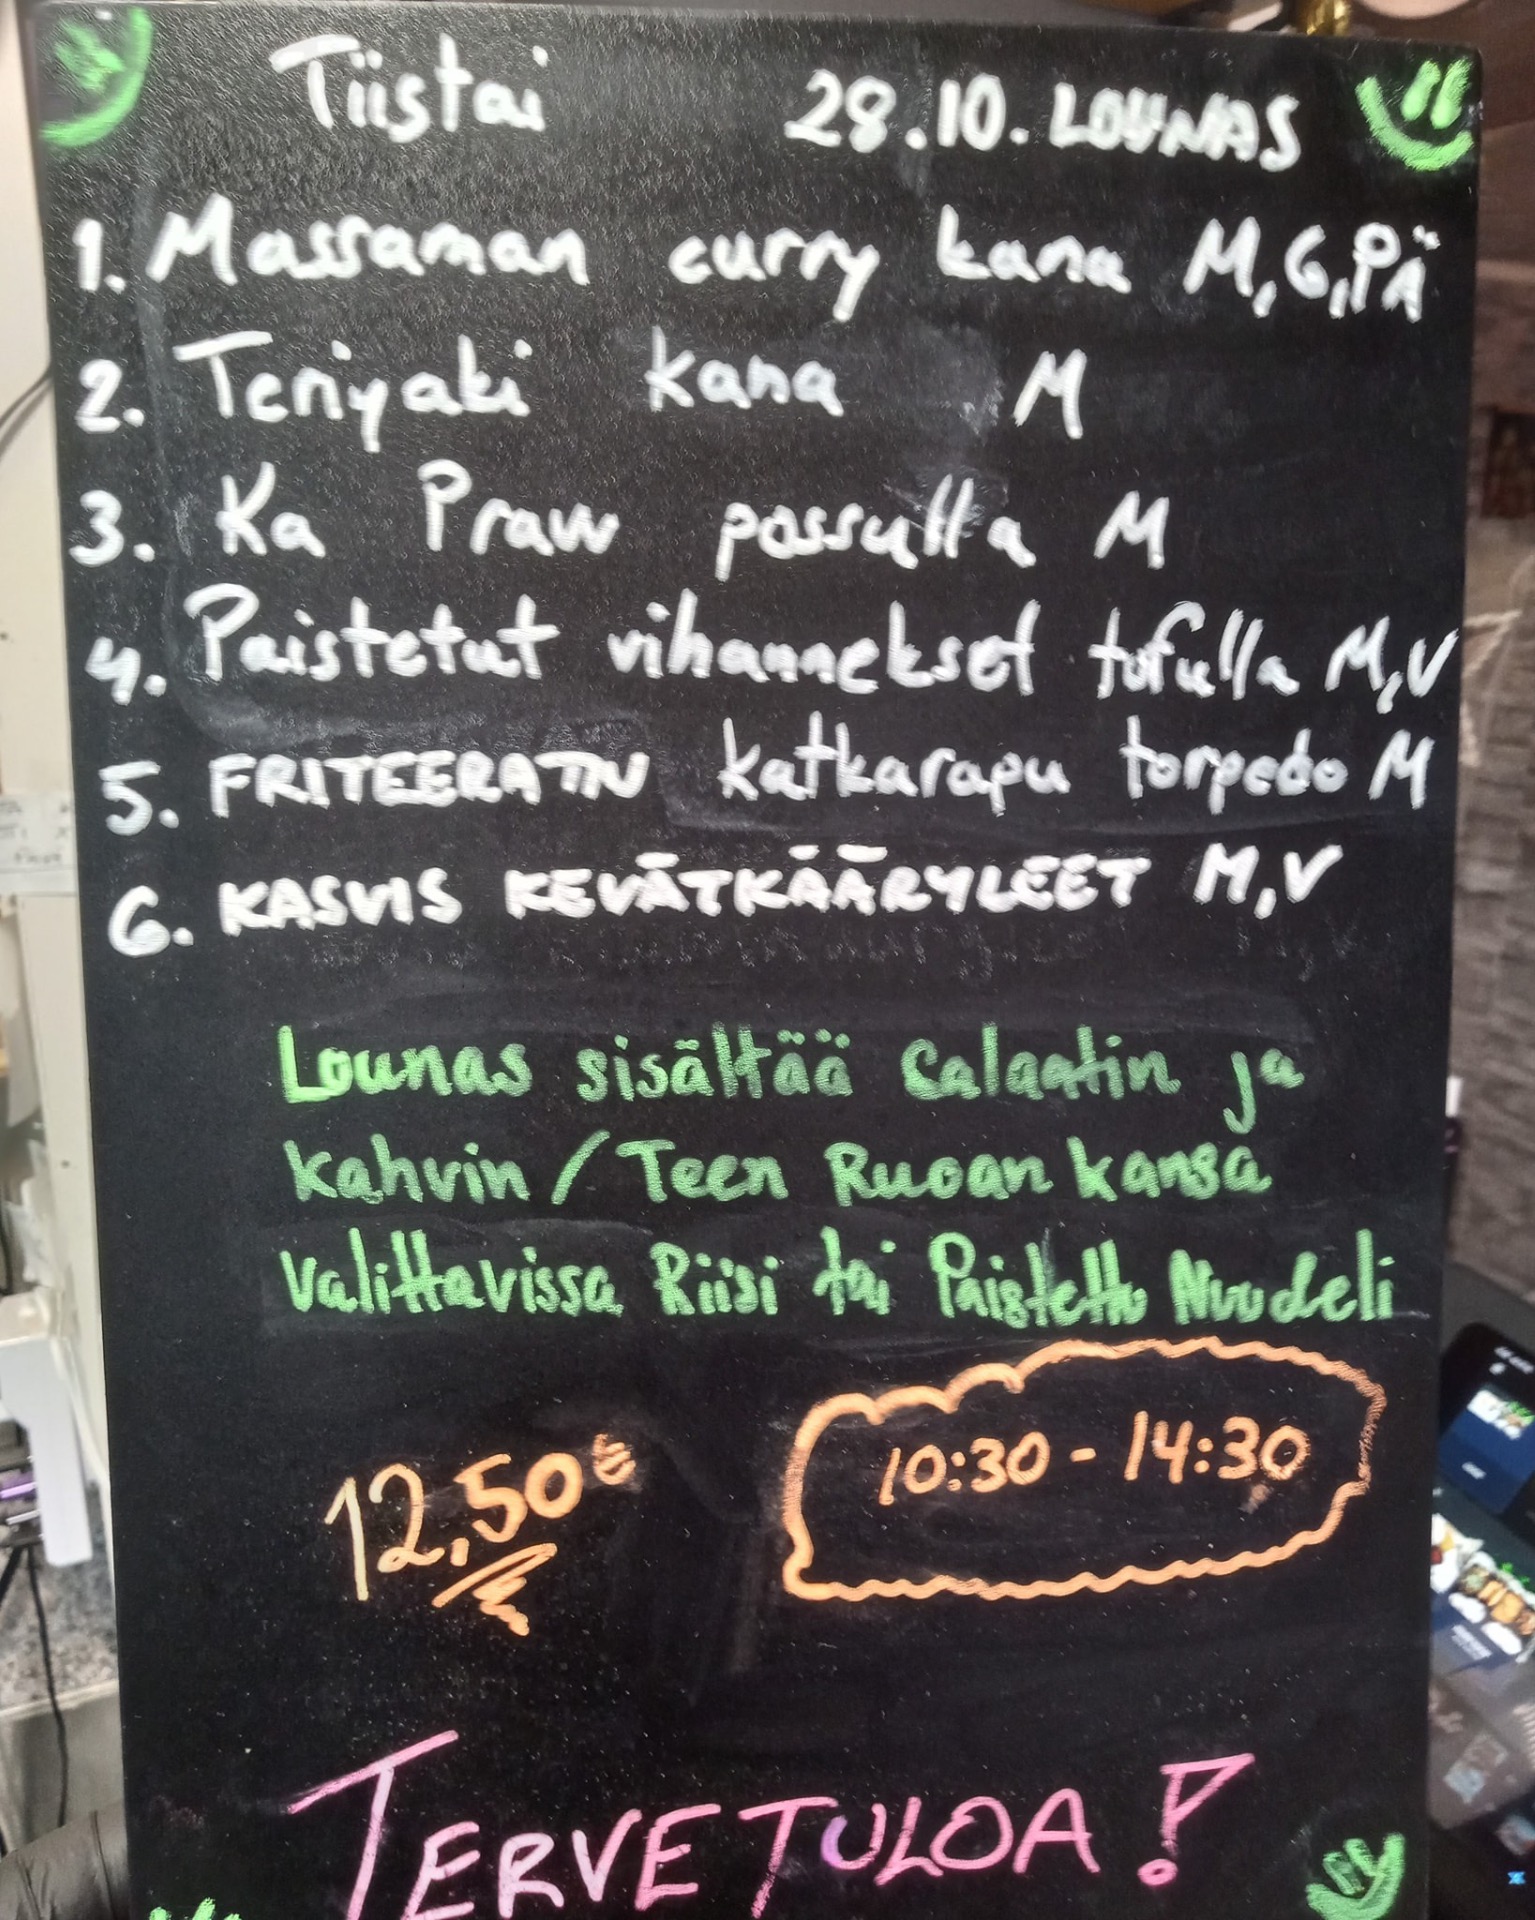 Tiistai 28.10. LOUNAS
1. Massaman curry kana M, G, PÄ
2. Teriyaki kana M
3. Ka Praw possulla M
4. Paistetut vihannekset tofulla M,V
5. FRITEERATTU katkarapu torpedo M
6. KASVIS KEVÄTKÄÄRYLEET M,V
Lounas sisältää Salaatin ja
kahvin / Teen Ruoan kansa
valittavissa Riisi tai Paistettu Nuudeli
12,50€
10:30 - 14:30
TERVETULOA!